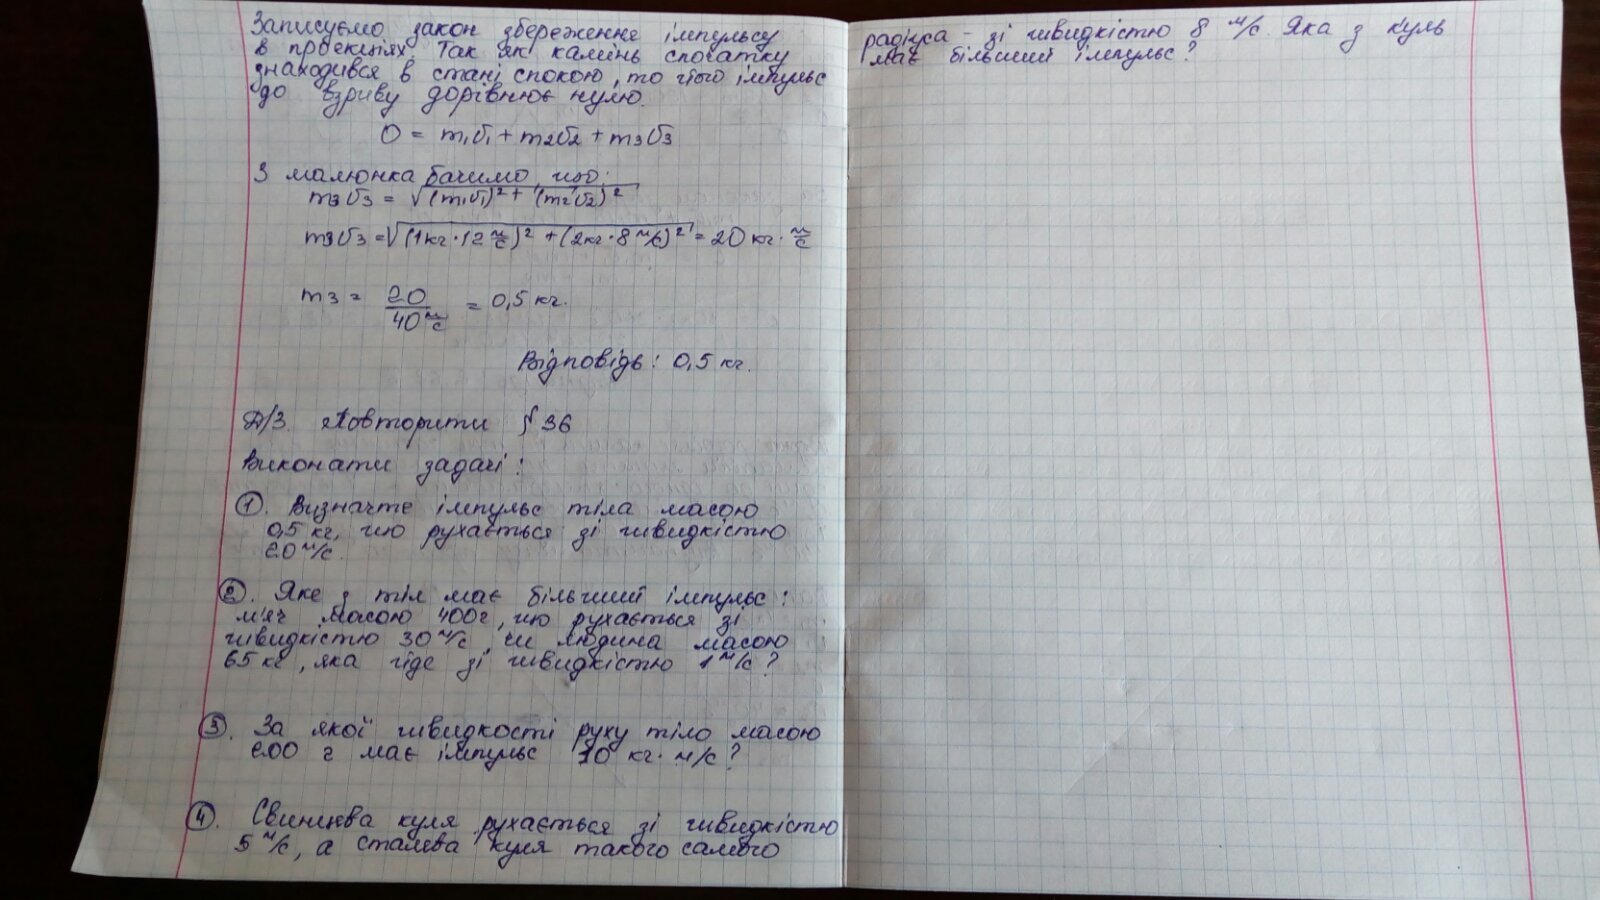 Записуємо закон збереження імпульсу
в проекціях. Так як камінь спочатку
знаходився в стані спокою, то його імпульс
до взриву дорівнює нулю.
0 = m₁υ₁ + m₂υ₂ + m₃υ₃
З малюнка бачимо, що:
m₃υ₃ = √(m₁υ₁)² + (m₂υ₂)²
m₃υ₃ = √(1кг·12 м/с)² + (2кг·8 м/с)² = 20 кг· м/с
m₃ = 20 / 40 м/с = 0,5 кг.
Відповідь: 0,5 кг.
Д/З. Повторити § 36
Виконати задачі:
①. Визначте імпульс тіла масою
0,5 кг, що рухається зі швидкістю
20 м/с.
②. Яке з тіл має більший імпульс:
м'яч масою 400г, що рухається зі
швидкістю 30 м/с, чи людина масою
65 кг, яка йде зі швидкістю 1 м/с?
③. За якої швидкості руху тіло масою
200 г має імпульс 10 кг· м/с?
④. Свинцева куля рухається зі швидкістю
5 м/с, а сталева куля такого самого
радіуса - зі швидкістю 8 м/с. Яка з куль
має більший імпульс?